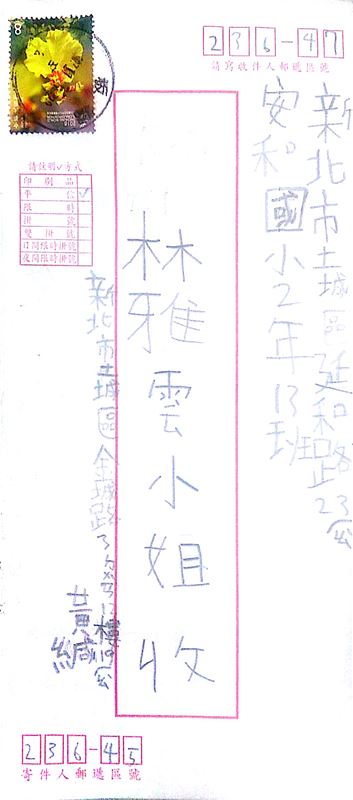 8
236-47
請寫收件人郵遞區號
新北市土城區延和路23
安和國小2年13班
林雅雲小姐 收
請註明✓方式
印刷品
平信 ✓
限時
掛號
雙掛號
日間限時掛號
夜間限時掛號
新北市土城區金城路3
黃
236-45
寄件人郵遞區號